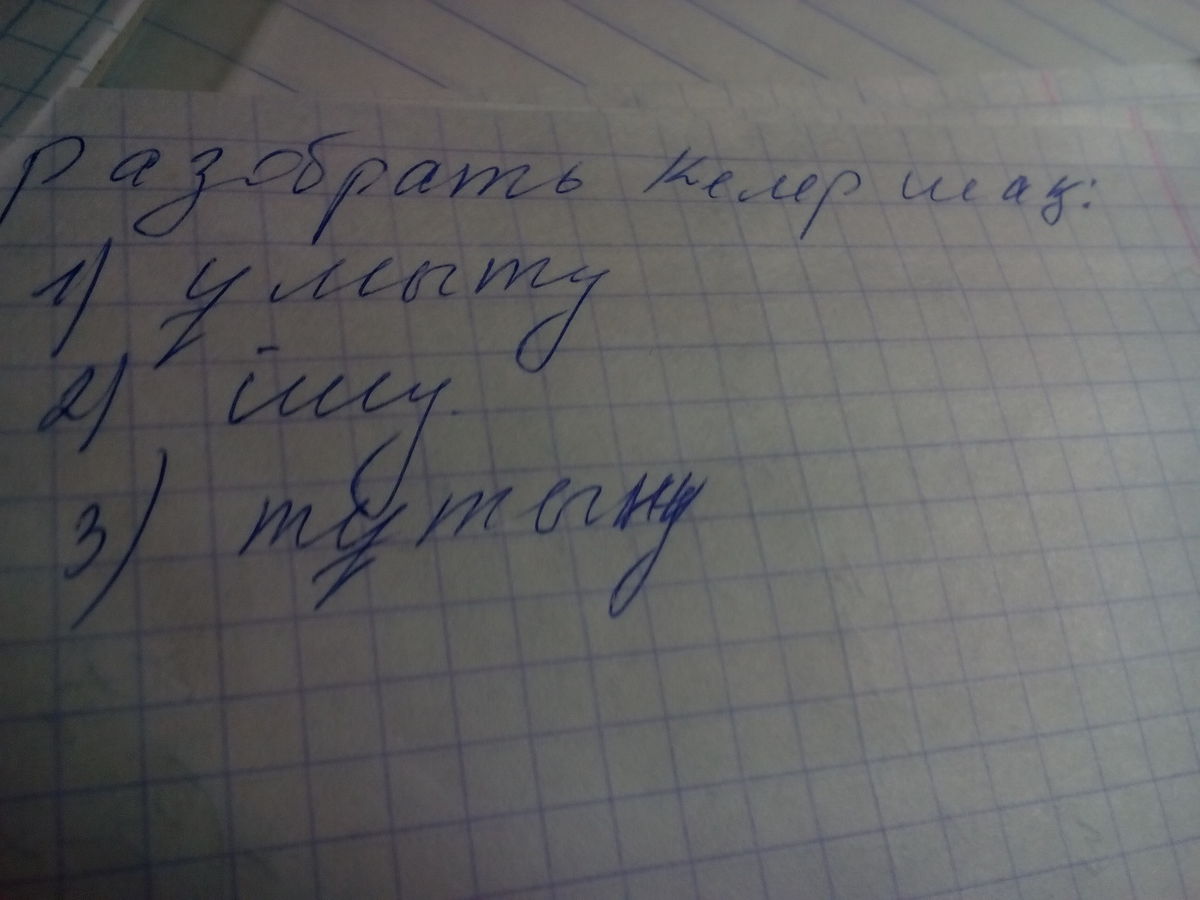 Разобрать келер шақ:
1) ұмыту
2) ішу
3) тұтыну